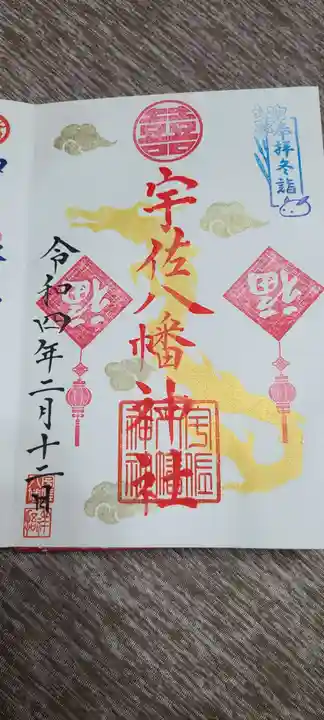 奉拝冬詣
宇佐八幡神社
福
福
令和四年二月十二日